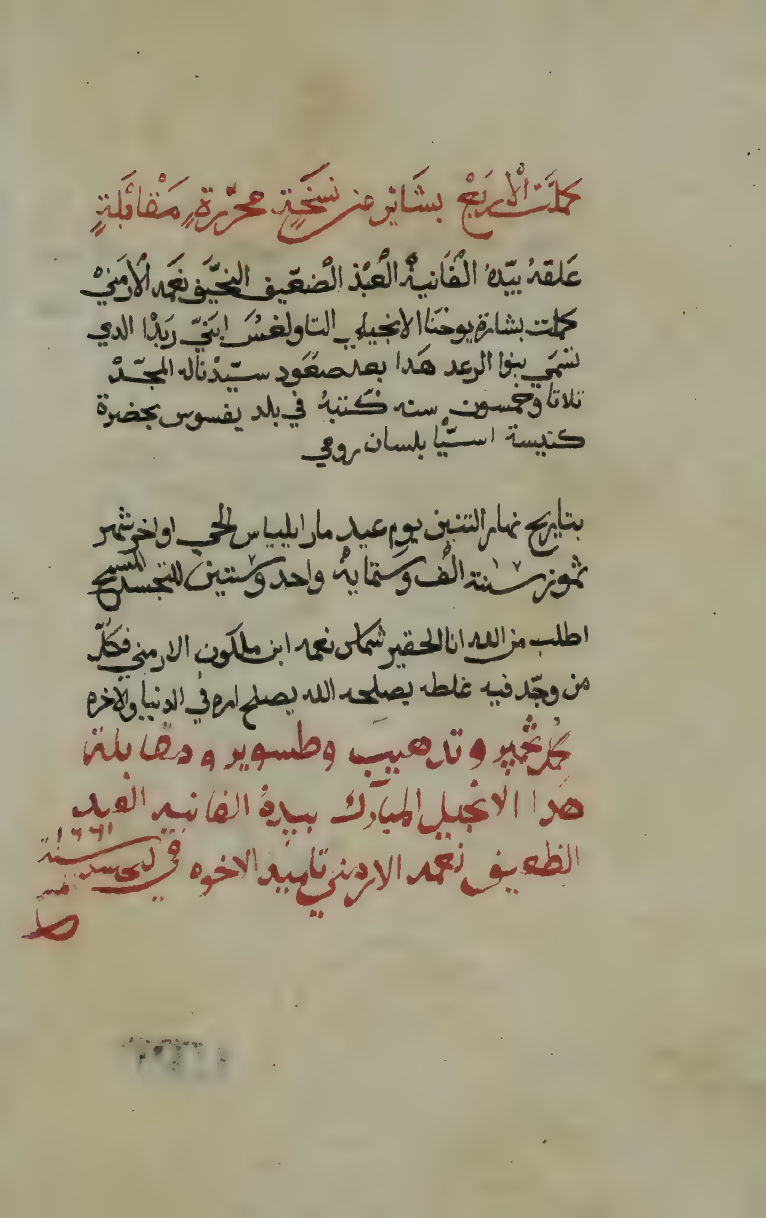 كملت الاربع بشاير من نسخة محررة مقابلة
علقه بيده الفانية العبد الضعيف النحيف نعمه الارمني
كملت بشارة يوحنا الانجيلي التاولغس ابني زبدا الدي
تسمي بنوا الرعد هدا بعد صعود سيدناله المجد
تلاتا وخمسون سنه كتبه في بلد يفسوس بحضرة
كنيسة اسيا بلسان رومي
بتاريح نهار التنين يوم عيد مار ايلياس الحي اواخر شهر
تموز سنة الف وستماية واحد وستين للتجسد المسيح
اطلب من الله انا الحقير شماس نعمه ابن ملكون الارمني فكل
من وجد فيه غلطه يصلحه الله يصلح امره في الدنيا والاخره
وتدهيب وطسوير ومقابلة
هدا الانجيل المبارك بيده الفانيه العبد
الظعيف نعمه الارمني تلميد الاخوه في
سنة ١٦٦١